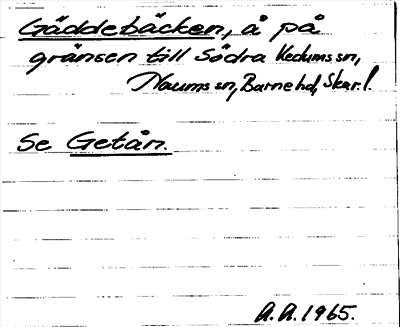 Gäddebäcken, å på
gränsen till Södra Kedums sn,
Naums sn, Barne hd, Skar. l.
Se Getån.
A.A. 1965.